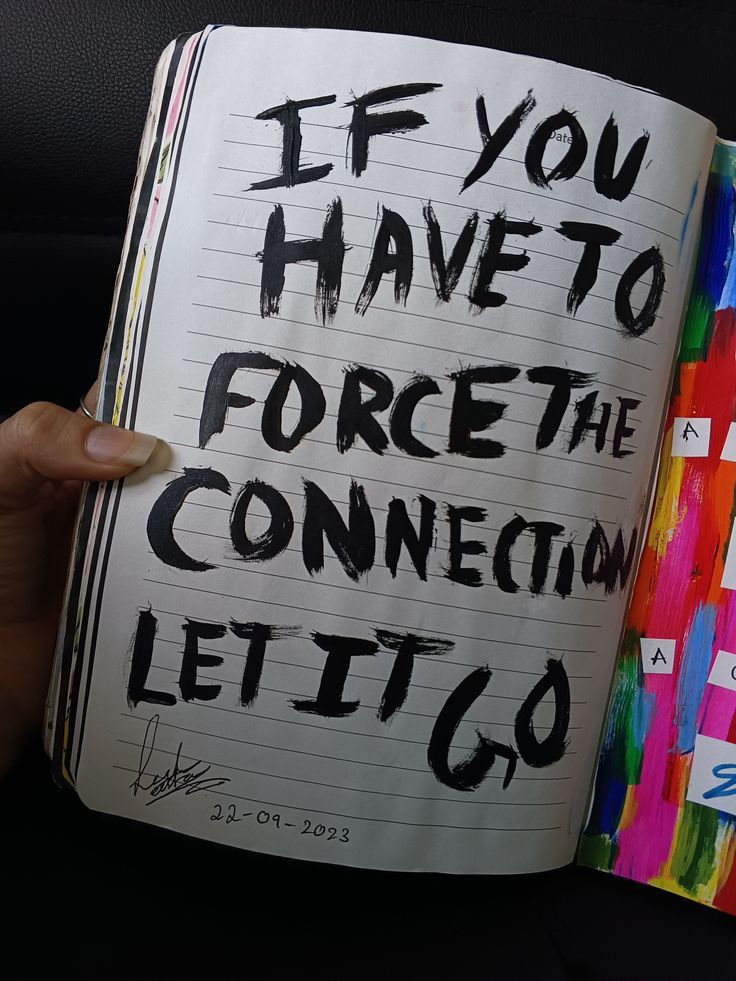 Date
IF YOU
HAVE TO
FORCE THE
CONNECTION
LET IT GO
22-09-2023
A
A